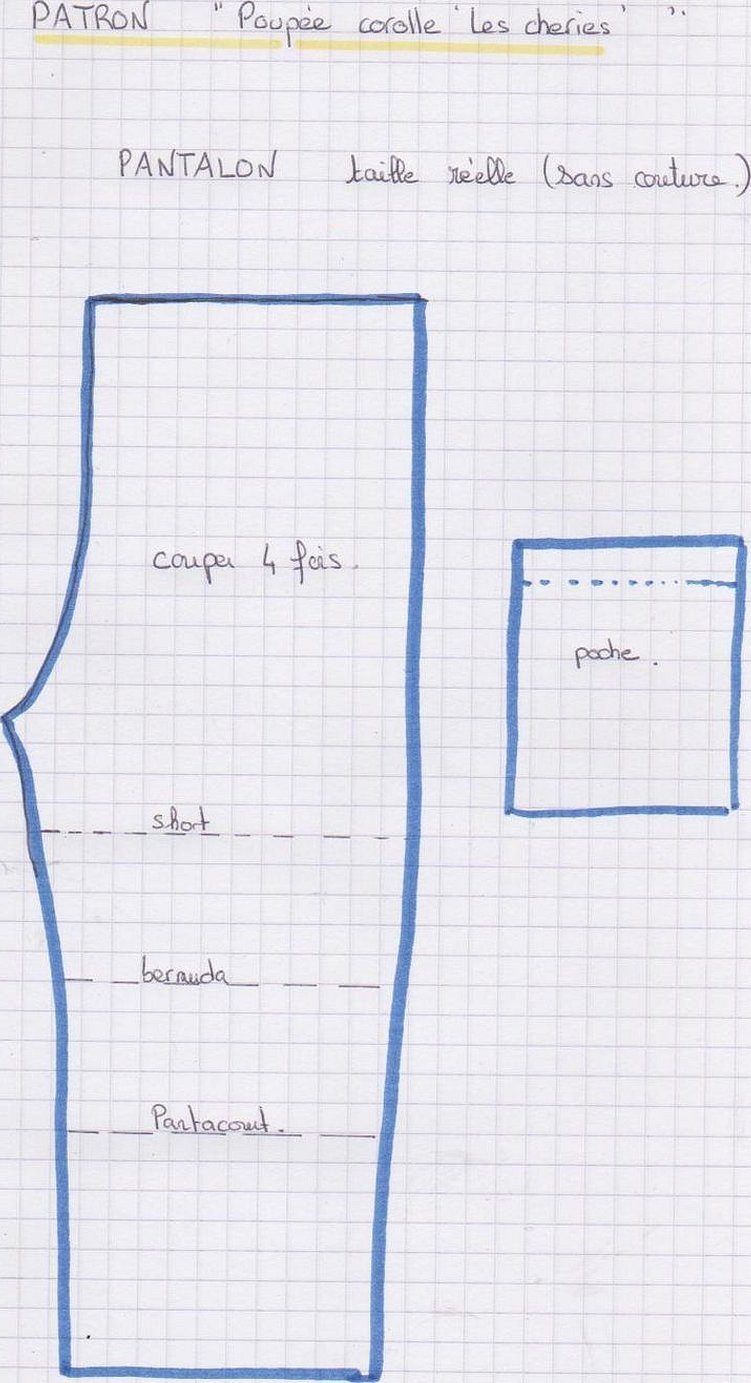 PATRON " Poupée corolle 'Les cheries' "
PANTALON taille réelle (sans couture.)
couper 4 fois.
poche.
short
bermuda
Pantacourt.